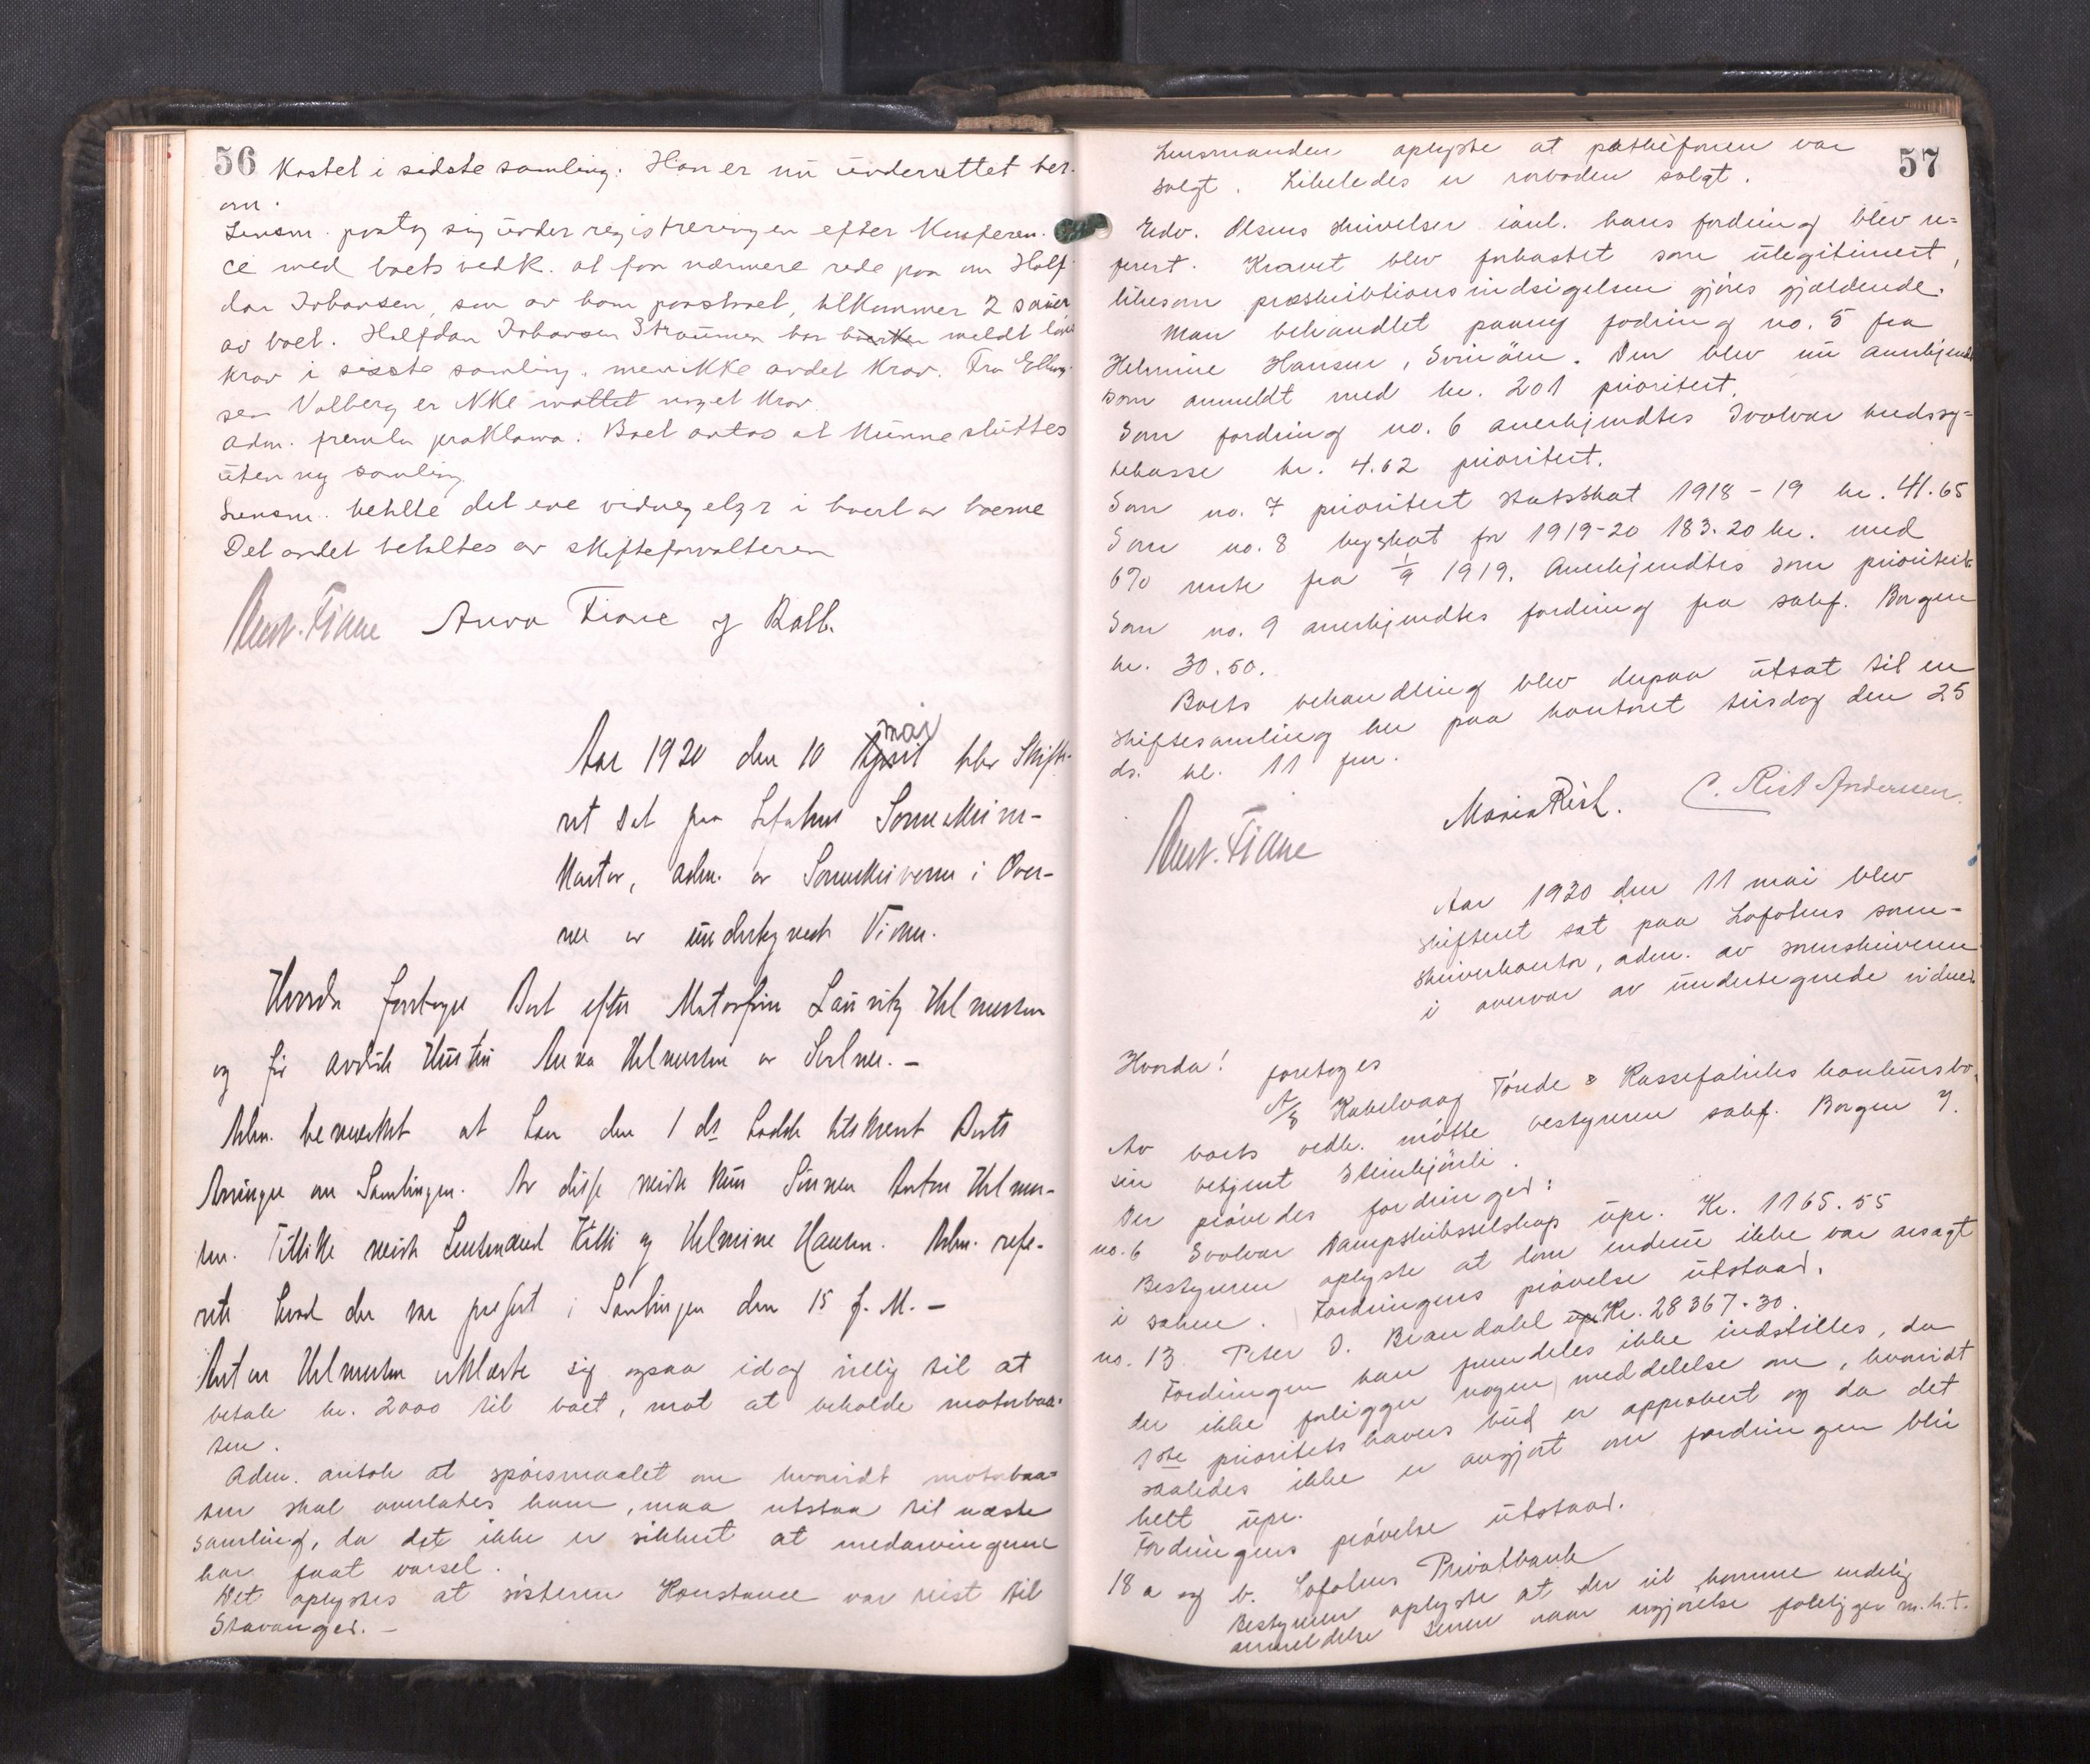 56 kastet i sidste samling. Han er nu underrettet her-
om.
Lensm. paatog sig under registreringen efter Konferen-
ce med boets vedk. at faa nærmere rede paa om Half-
dan Johansen, som av ham paastaaet, tilkommer 2 sauer
av boet. Halfdan Johansen Straumen har hverken meldt
krav i sidste samling, men ikke andet krav. Fra Elling-
sen Valberg er ikke mottat noget krav.
Adm. fremla proklama. Boet antas at kunne sluttes
uten ny samling.
Lensm. beholdt det ene i av boerne
Det andet beholdtes av skifteforvalteren
Anst. Fiane Anna Fiane J Balle.
Aar 1920 den 10 April mai blev Skifte-
ret sat paa Lofotens Sorenskriver-
kontor, adm. av Sorenskriveren i Over-
vær av undertegnede Vidner.
Hvorda foretoges Boet efter Motorfører Lauritz Helmersen
og før avdøde Hustru Anna Helmersen av . -
Adm. bemerket at han den 1 ds hadde tilskrevet Boets
Arvinger om Samlingen. Av disse møtte kun Sønnen Anton Helmer-
sen. Tillike møtte Lensmand og Helmine Hansen. Adm. refe-
rerte hvad der var passert i Samlingen den 15 f. M. -
Anton Helmersen erklærte sig ogsaa idag villig til at
betale kr. 2000 til boet, mot at beholde motorbaa-
ten.
Adm. antok at spørsmaalet om hvorvidt motorbaa-
ten skal overlates ham, maa utstaa til næste
samling, da det ikke er sikkert at medarvingerne
har faat varsel.
Det oplystes at søsteren Konstance var reist til
Stavanger. -
57
Lensmanden oplyste at var
solgt. Likeledes er rorboden solgt.
Edv. Olsens skrivelser ianl. hans fordring blev re-
ferert. Kravet blev forkastet som ulegitimert,
likesom præskriptionsindsigelsen gjøres gjældende.
Man behandlet paany fodring no. 5 fra
Helmine Hansen, Svinøen. Den blev nu anerkjendt
som anmeldt med kr. 201 prioritert.
Som fordring no. 6 anerkjendtes Svolvær kredssy-
kekasse kr. 4.62 prioritert.
Som no. 7 prioritert statsskat 1918-19 kr. 41.65
Som no. 8 byskat for 1919-20 183.20 kr. med
6% rente fra 1/9 1919. Anerkjendtes som prioritert.
Som no. 9 anerkjendtes fordring fra sakf. Borgen
kr. 30.50.
Boets behandling blev derpaa utsat til en
skiftesamling her paa kontoret tirsdag den 25
ds. kl. 11 fm.
Anst. Fiane Maria Rist. C. Rist Andersen.
Aar 1920 den 11 mai blev
skifteret sat paa Lofotens soren-
skriverkontor, adm. av sorenskriveren
i overvær av undertegnede vidner.
Hvorda! foretoges
A/S Kabelvaag Tønde & Kassefabriks konkursbo.
Av boets vedk. møtte bestyreren sakf. Borgen v.
sin betjent Steinkjønli.
Der prøvedes fordringer:
no. 6 Svolvær Dampskibsselskap upr. Kr. 1165.55
Bestyreren oplyste at dom endnu ikke var avsagt
i saken. Fordringens prøvelse utstaar.
no. 13. Peter J. Brandahl upr Kr. 28367.30.
Fordringen kan fremdeles ikke indstilles, da
der ikke foreligger nogen meddelelse om, hvorvidt
1ste prioritetshavers bud er approbert og da det
saaledes ikke er avgjort om fordringen blir
helt upr.
Fordringens prøvelse utstaar.
18 a og b. Lofotens Privatbank
Bestyreren oplyste at der vil komme endelig
anmeldelse senere naar avgjørelse foreligger m.h.t.